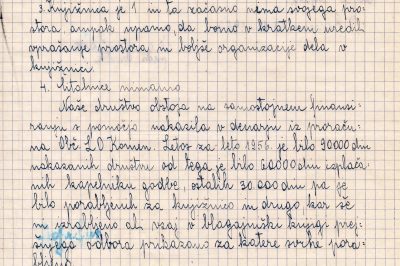 3. Knjižnica je 1 in ta začasno nema svojega pro-
stora, ampak upamo, da bomo v kratkem uredili
vprašanje prostora in boljše organizacije dela v
knjižnici.
4. Čitalnice nimamo
Naše društvo obstoja na samostojnem finansi-
ranju s pomočjo nakazila v denarju iz proraču-
na Obč. L. O Komen. Letos za leto 1956. je bilo 90000 din
nakazanih društvu od tega je bilo 60.000 din izplača-
nih kapelniku godbe, ostalih 30.000 din pa je
bilo porabljenih za knjižnico in drugo kar še
ni izrabljeno ali vsaj v blagajniški knjigi prej-
šnjega odbora prikazano za katere svrhe pora-
bljeno